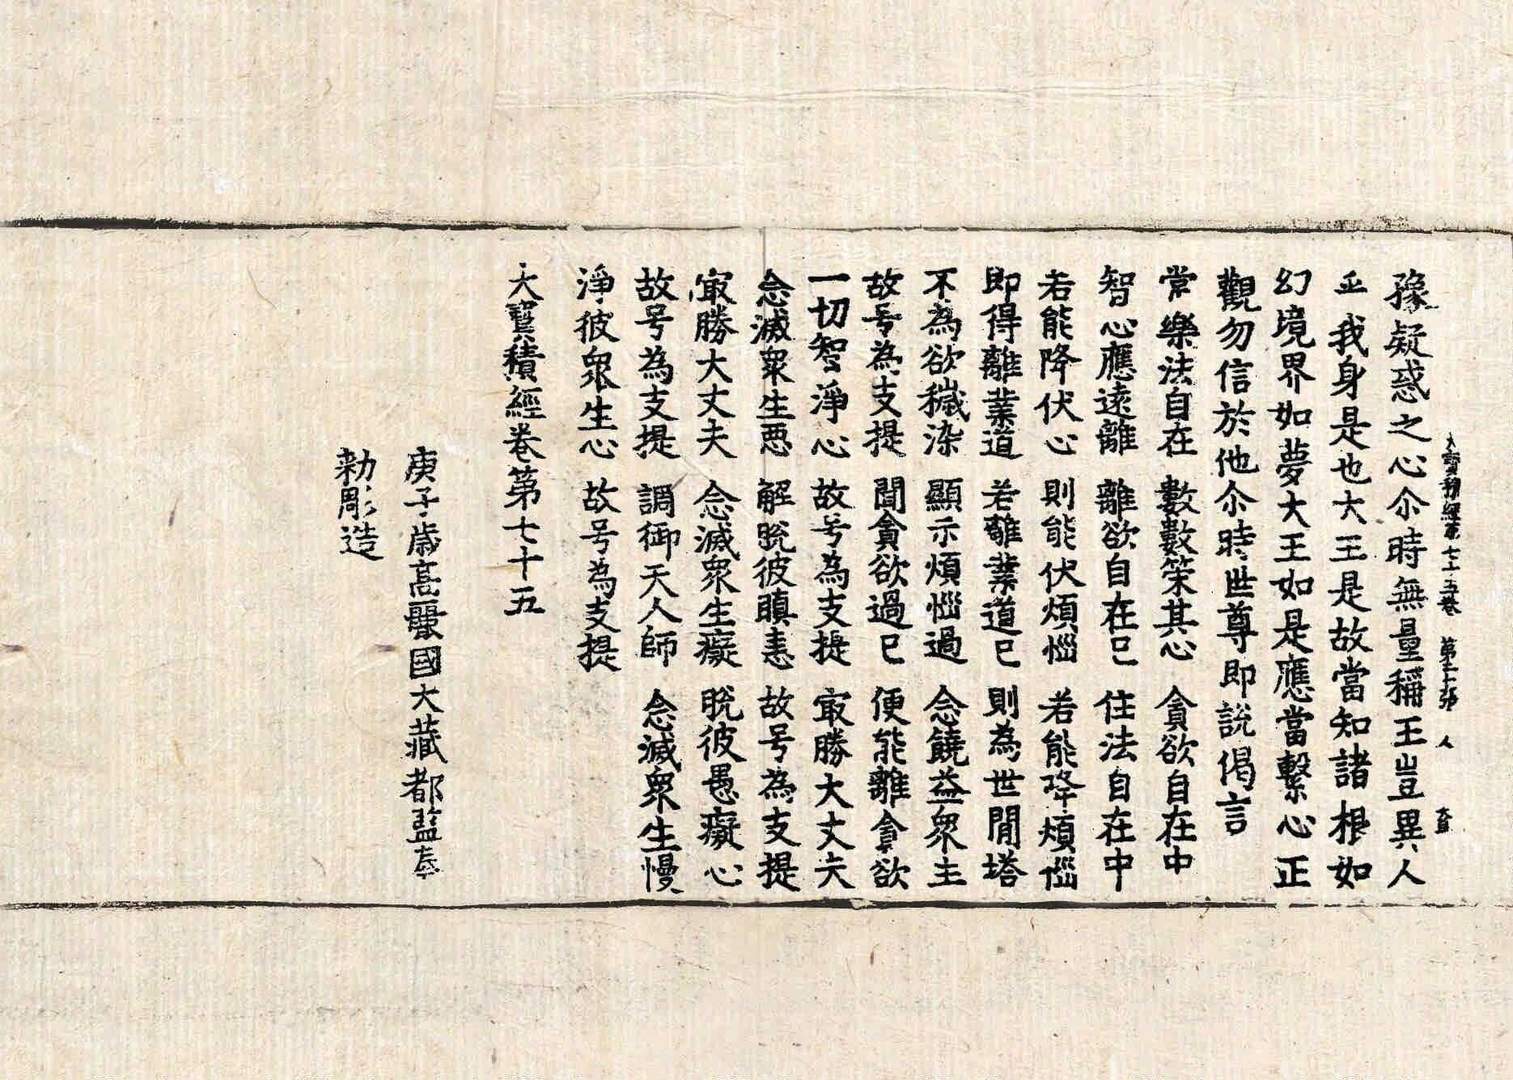 大寶積經第七十五卷 第二十張 人
豫疑惑之心尒時無量稱王豈異人
乎我身是也大王是故當知諸根如
幻境界如夢大王如是應當繫心正
觀勿信於他尒時世尊即說偈言
常樂法自在 數數策其心 貪欲自在中
智心應遠離 離欲自在已 住法自在中
若能降伏心 則能伏煩惱 若能降煩惱
即得離業道 若離業道已 則為世間塔
不為欲穢染 顯示煩惱過 念饒益眾生
故号為支提 聞貪欲過已 便能離貪欲
一切智淨心 故号為支提 㝡勝大丈夫
念滅眾生惡 解脫彼瞋恚 故号為支提
㝡勝大丈夫 念滅眾生癡 脫彼愚癡心
故号為支提 調御天人師 念滅眾生慢
淨彼眾生心 故号為支提
大寶積經卷第七十五
庚子歲高麗國大藏都監奉
勑彫造